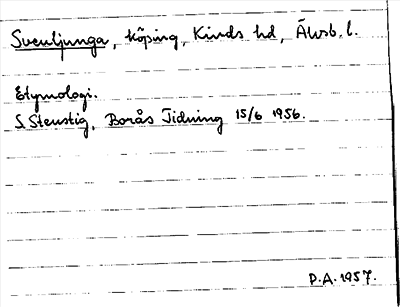 Svenljunga, köping, Kinds hd, Älvsb. l.
Etymologi.
S. Stenstig, Borås Tidning 15/6 1956.
P.A. 1957.